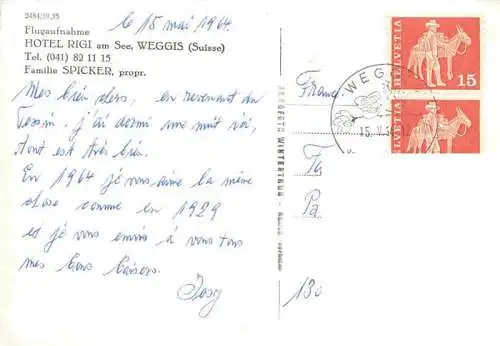 2484/10.35
Flugaufnahme
HOTEL RIGI am See, WEGGIS (Suisse)
Tel. (041) 82 11 15
Familie SPICKER, propr.
le 15 mai 1964.
Mes bien chers, en revenant du
Tessin, j'ai dormi une nuit ici,
tout est très bien.
En 1964 je vous aime la même
chose comme en 1929
et je vous envois à vous tous
mes bons baisers.
Josy
WINTERTHUR
HELVETIA
15
HELVETIA
WEGGIS
Franc
Pa
130